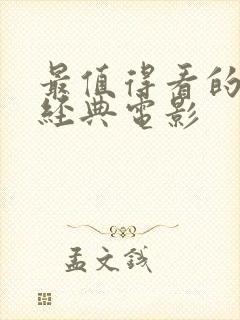 最值得看的
經典電影
孟文錢